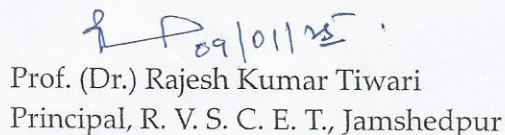 09/01/25
Prof. (Dr.) Rajesh Kumar Tiwari
Principal, R. V. S. C. E. T., Jamshedpur